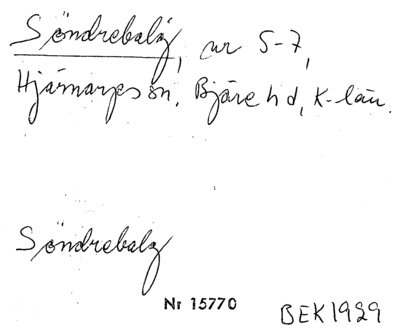 Söndrebalg, ur S-7,
Hjärnarps sn. Bjäre hd, K-län.
Söndrebalg
Nr 15770
BEK1929